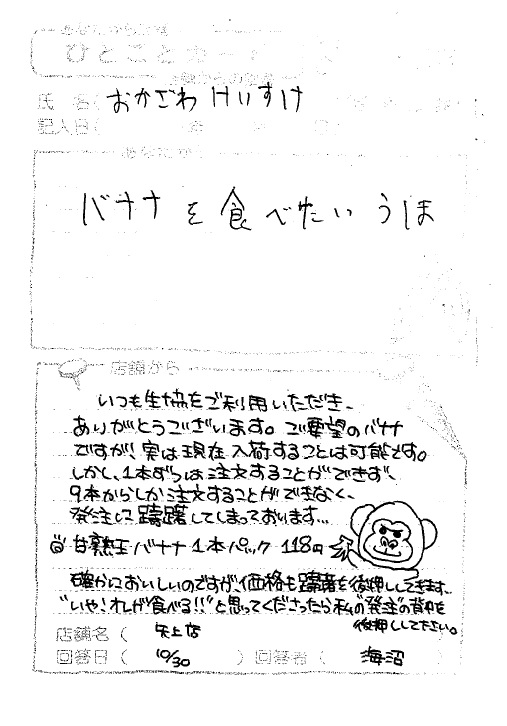 ひとことカード
氏 名( おかざわ けいすけ
記入日(
バナナ を 食べたい うほ
店舗から
いつも生協をご利用いただき、
ありがとうございます。ご要望のバナナ
ですが、実は現在入荷することは可能です。
しかし、1本ずつは注文することができず、
9本からしか注文することができなく、
発注に躊躇してしまっております…
甘熟王バナナ 1本パック 118円
確かにおいしいのですが、価格も躊躇を後押ししてきます…
"いや!オレが食べる!!"と思ってくださったら私の"発注"の背中を
後押しして下さい。
店舗名( 矢上店
回答日( 10/30 )回答者( 海沼 )